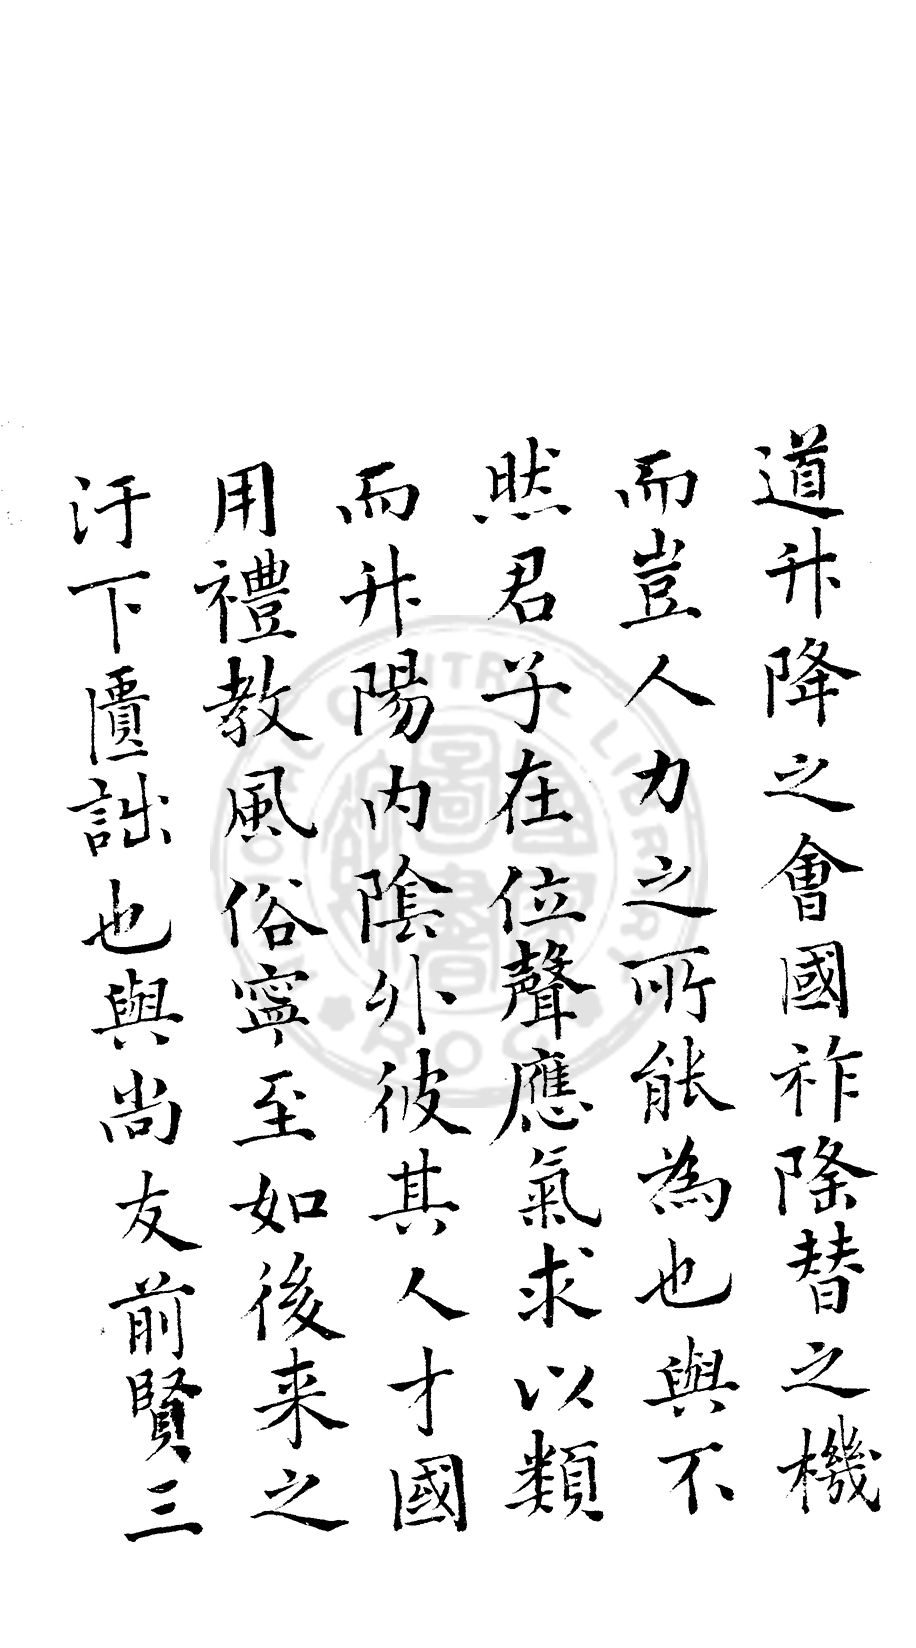 道升降之會國祚隆替之機
而豈人力之所能為也與不
然君子在位聲應氣求以類
而升陽内陰外彼其人才國
用禮教風俗寧至如後来之
汙下匱詘也與尚友前賢三